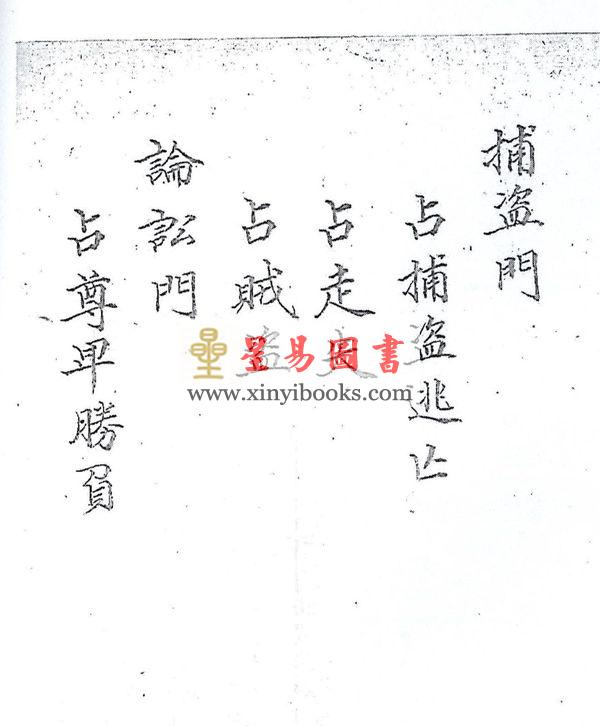 捕盜門
占捕盜逃亡
占走失
占賊盜
論訟門
占尊卑勝負
星易圖書
www.xinyibooks.com